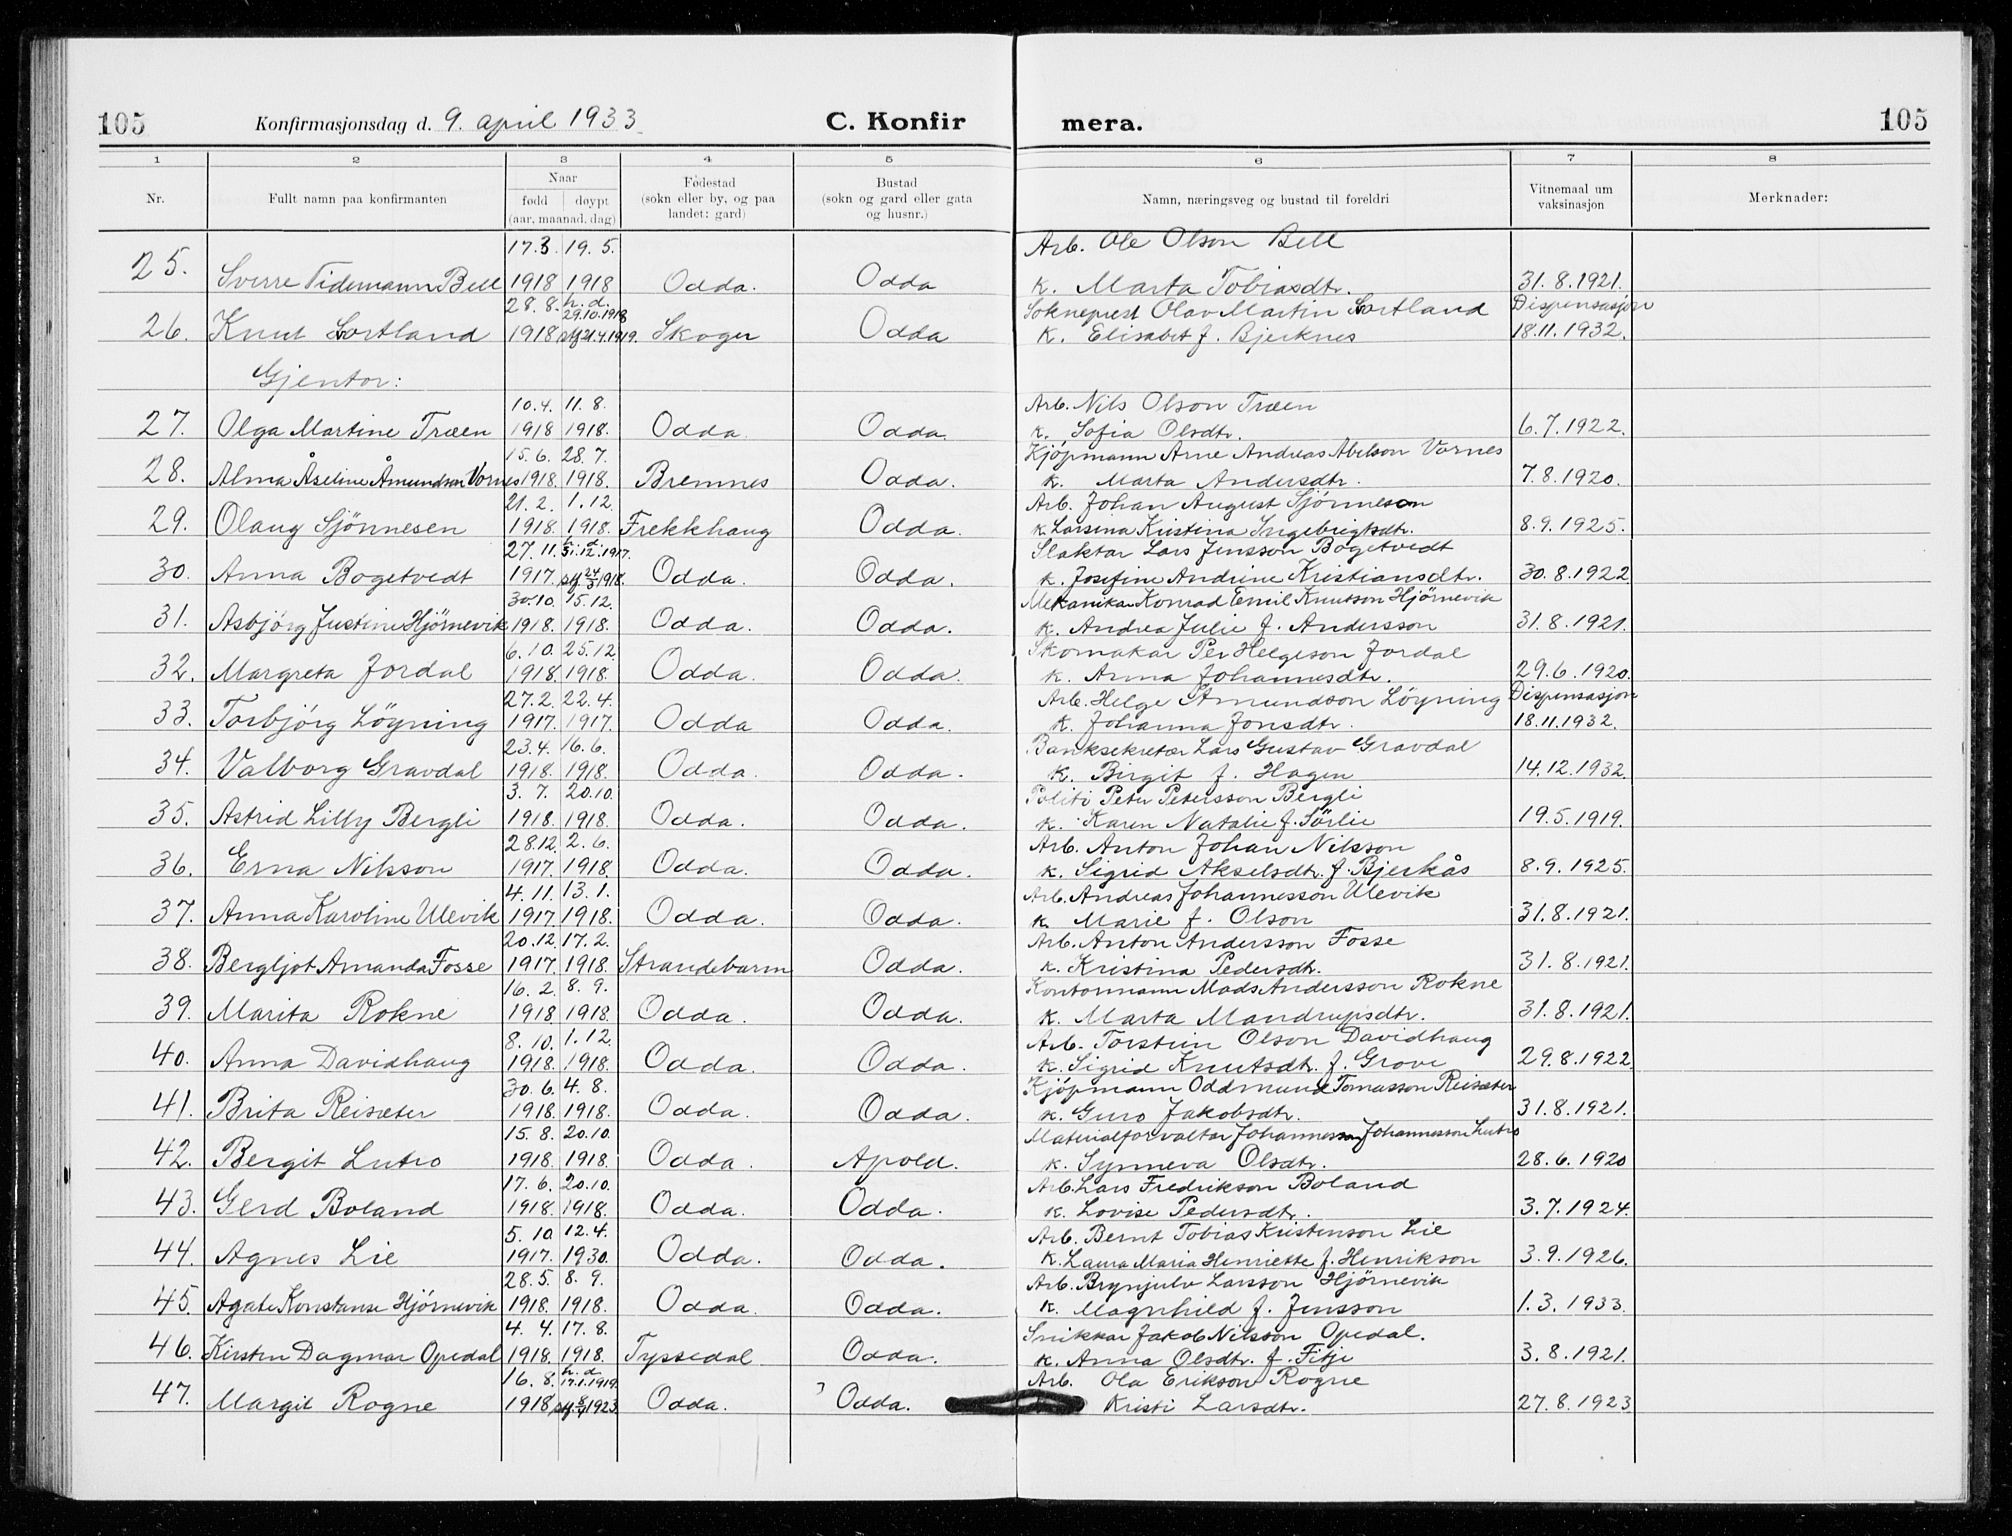 105 Konfirmasjonsdag d. 9. april 1933 C. Konfir mera. 105
1 2 3 4 5 6 7 8
Nr. Fullt namn paa konfirmanten Naar fødd døypt (aar, maanad, dag) Fødestad (sokn eller by, og paa landet: gard) Bustad (sokn og gard eller gata og husnr.) Namn, næringsveg og bustad til foreldri Vitnemaal um vaksinasjon Merknader:
17.3. 19.5. Arb. Ole Olson Bell
25. Sverre Tidemann Bell 1918 1918 Odda. Odda k. Marta Tobiasdtr. 31.8.1921.
28.8. h.d. 29.10.1918 Sokneprest Olav Martin Sortland Dispensasjon
26. Knut Sortland 1918 stf 21.4.1919. Skoger Odda k. Elisabet f. Bjerknes 18.11.1932.
Gjentor:
10.4. 11.8. Arb. Nils Olson Træen
27. Olga Martine Træen 1918 1918. Odda. Odda. k. Sofia Olsdtr. 6.7.1922.
15.6. 28.7. Kjøpmann Arne Andreas Abelson Vornes
28. Alma Åseline Åmundson Vornes 1918. 1918. Bremnes Odda. k. Marta Andersdtr. 7.8.1920.
21.2. 1.12. Arb. Johan August Sjönnesen
29. Olaug Sjönnesen 1918. 1918. Frekkhaug Odda. k. Larsina Kristina Ingebrigtsdtr. 8.9.1925.
27.11. h.d. 31.12.1917. Slaktar Lars Jensson Bogetvedt
30. Anna Bogetvedt 1917. stf 24/3 1918. Odda. Odda. k. Josefine Andrine Kristiansdtr. 30.8.1922
30.10. 15.12. Mekanikar Konrad Emil Knutson Hjörnevik
31. Asbjörg Justine Hjörnevik 1918. 1918. Odda. Odda. k. Andrea Julie f. Andersson 31.8.1921.
6.10. 25.12. Skomakar Per Helgeson Jordal
32. Margreta Jordal 1918. 1918. Odda. Odda. k. Anna Johannesdtr. 29.6.1920.
27.2. 22.4. Arb. Helge Åmundson Löyning Dispensasjon
33. Torbjörg Löyning 1917. 1917. Odda Odda. k. Johanna Jonsdtr. 18.11.1932.
23.4. 16.6. Banksekretær Lars Gustav Gravdal
34. Valborg Gravdal 1918. 1918. Odda. Odda. k. Birgit f. Hagen 14.12.1932.
3.7. 20.10. Politi Peter Petersson Bergli
35. Astrid Lilly Bergli 1918. 1918. Odda. Odda. k. Karen Natalie f. Sörlie 19.5.1919.
28.12. 2.6. Arb. Anton Johan Nilsson
36. Erna Nilsson 1917. 1918. Odda. Odda. k. Sigrid Akselsdtr. f. Bjerkås 8.9.1925.
4.11. 13.1. Arb. Andreas Johannesson Ulevik
37. Anna Karoline Ulevik 1917. 1918. Odda. Odda. k. Marie f. Olson 31.8.1921.
20.12. 17.2. Arb. Anton Andersson Fosse
38. Bergljot Amanda Fosse 1917. 1918. Strandebarm Odda. k. Kristina Pedersdtr. 31.8.1921.
16.2. 8.9. Kontormann Mads Andersson Rokne
39. Marita Rokne 1918. 1918. Odda. Odda. k. Marta Mandrupsdtr. 31.8.1921.
8.10. 1.12. Arb. Torstein Olson Davidhaug
40. Anna Davidhaug 1918. 1918. Odda. Odda. k. Sigrid Knutsdtr. f. Grove 29.8.1922.
30.6. 4.8. Kjøpmann Oddmund Tomasson Reisæter
41. Brita Reisæter 1918. 1918. Odda. Odda. k. Guro Jakobsdtr. 31.8.1921.
15.8. 20.10. Materialforvaltar Johannes Johannesson Lutro
42. Bergit Lutro 1918. 1918. Odda. Apold. k. Synneva Olsdtr. 28.6.1920
17.6. 20.10. Arb. Lars Fredrikson Boland
43. Gerd Boland 1918. 1918. Odda. Odda. k. Lovise Pedersdtr. 3.7.1924.
5.10 12.4. Arb. Bernt Tobias Kristenson Lie
44. Agnes Lie 1917. 1930. Odda. Odda. k. Laura Maria Henriette f. Henrikson 3.9.1926.
28.5. 8.9. Arb. Brynjulv Larsson Hjörnevik
45. Agate Konstanse Hjörnevik 1918. 1918. Odda. Odda. k. Magnhild f. Jensson 1.3.1933.
4.4. 17.8. Snikkar Jakob Nilsson Opedal.
46. Kirsten Dagmar Opedal 1918. 1918. Tyssedal Odda. k. Anna Olsdtr. f. Fitje 3.8.1921.
16.8. h.d. 17.1.1919. Arb. Ola Erikson Rogne
47. Margit Rogne 1918 1923 Odda. Odda. Kristi Larsdtr. 27.8.1923